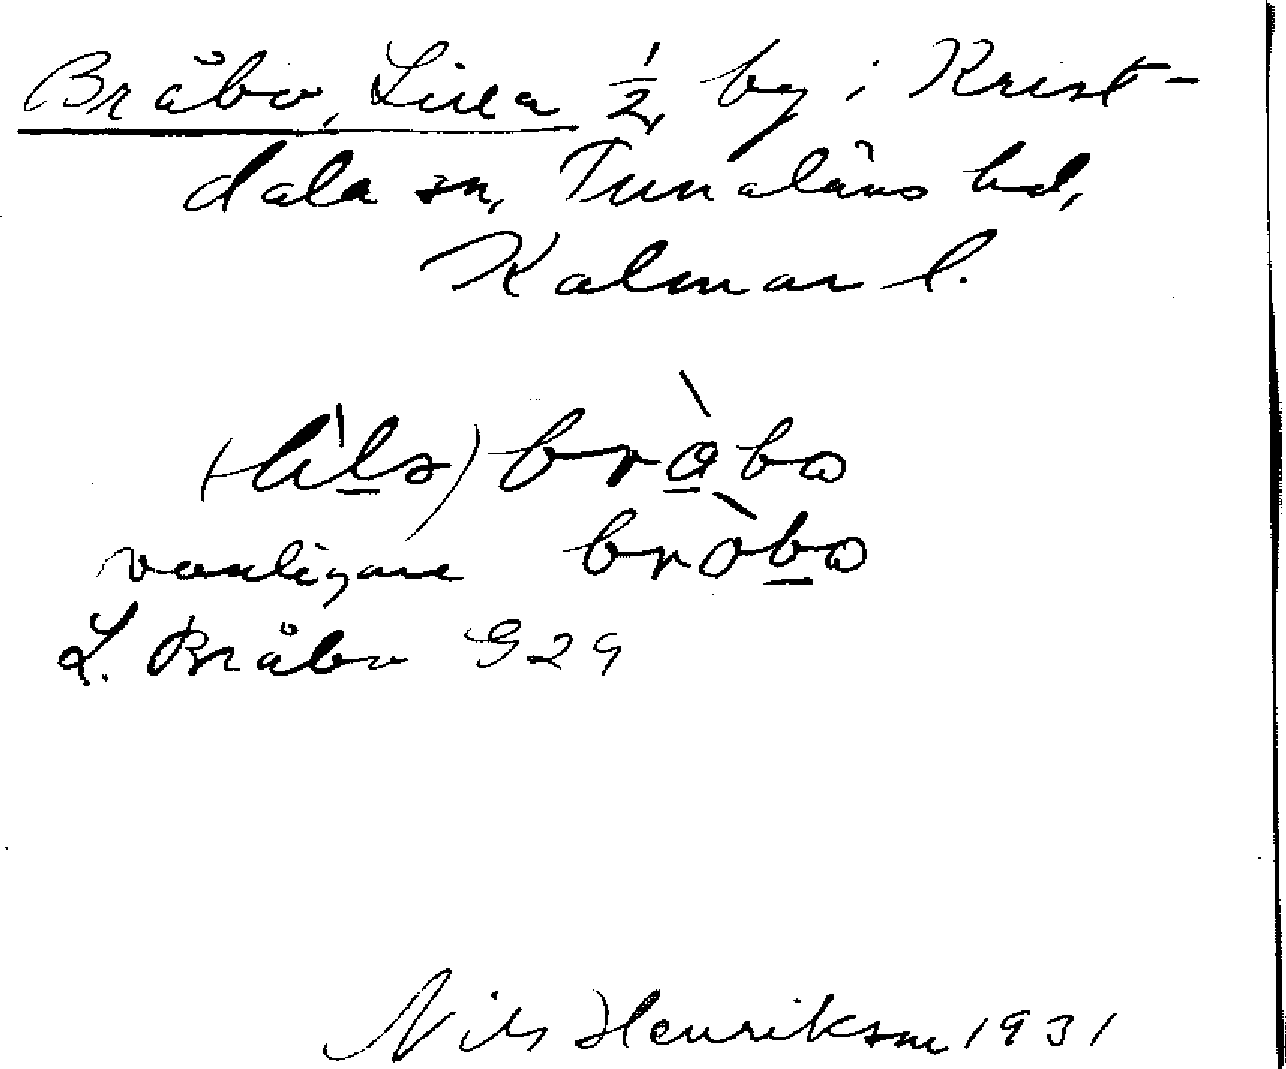 Bråbo, Lilla 1/2, by i Krist-
dala sn, Tunaläns hd,
Kalmar l.
(lìls) bràbo
vanligare bròbo
L. Bråbo G29
Nils Henrikson 1931